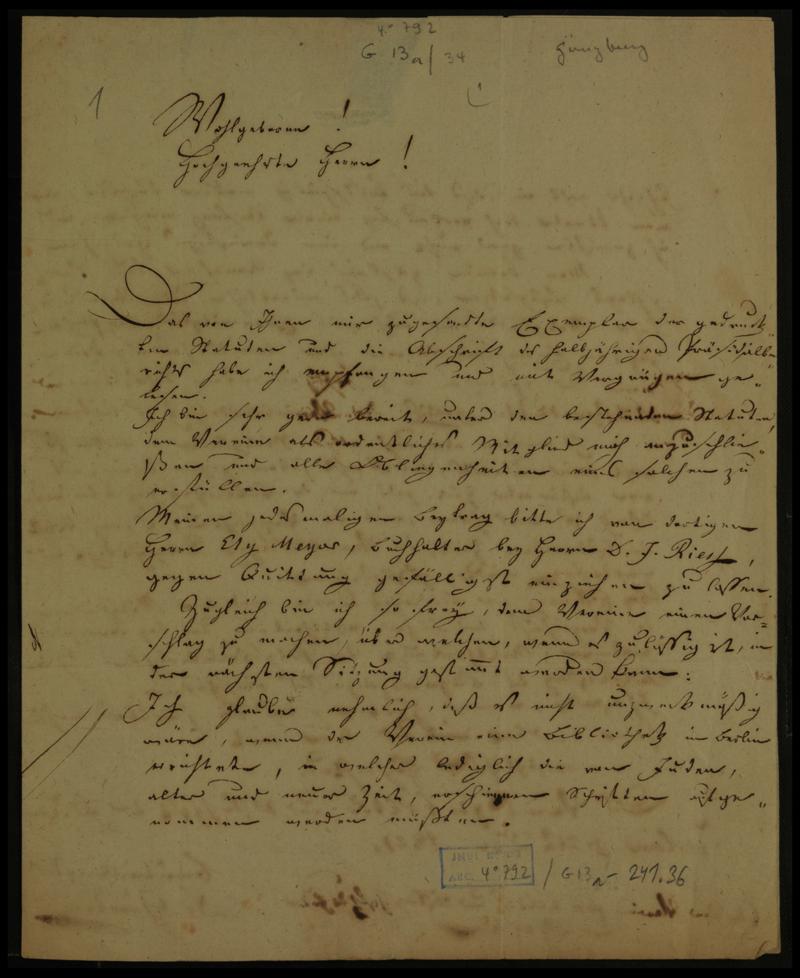 4° 792
G 13a/34
Günzburg
1
Wohlgeboren !
Hochgeehrte Herrn !
Das von Ihnen mir zugesandte Exemplar der gedruck„
ten Statuten und die Abschrift des halbjährigen Präsidialbe„
richts habe ich empfangen und mit Vergnügen ge„
lesen.
Ich bin sehr gern bereit, unter den bestehenden Statuten,
dem Vereine als ordentliches Mitglied mich anzuschlie„
ßen und alle Obliegenheiten eines solchen zu
erfüllen.
Meinen jedesmaligen Beytrag bitte ich von dortigem
Herrn Meyer, Buchhalter bey Herrn D. J. Riess,
gegen Quittung gefälligst einziehen zu lassen.
Zugleich bin ich so frey, dem Vereine einen Vor„
schlag zu machen, über welchen, wenn es zulässig ist, in
der nächsten Sitzung gestimmt werden kann:
Ich glaube nehmlich, daß es nicht unzweckmäßig
wäre, wenn der Verein eine Bibliothek in Berlin
errichtete, in welcher lediglich die von Juden,
alter und neuer Zeit, erschienenen Schriften aufge„
nommen werden müßten.
4° 792 / G 13a - 241.36